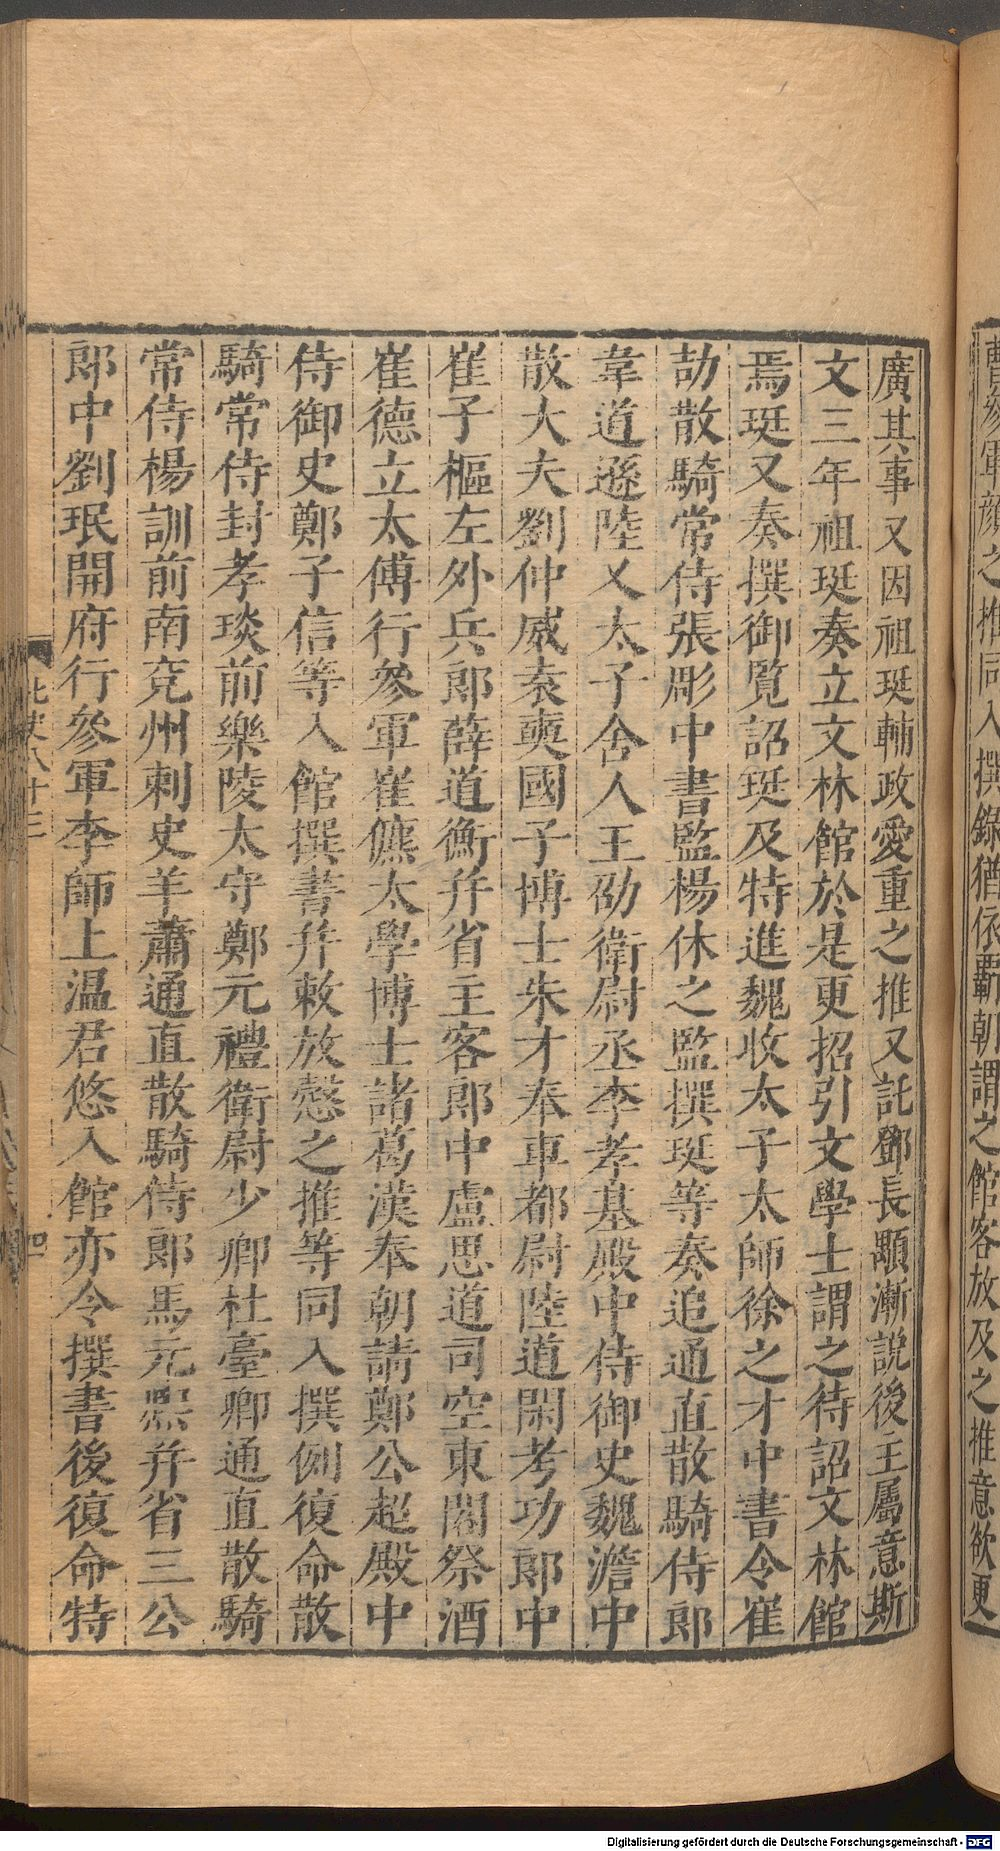 曹參軍顔之推同入撰錄猶依霸朝謂之館客放及之推意欲更
廣其事又因祖珽輔政愛重之推又託鄧長顒漸說後主屬意斯
文三年祖珽奏立文林館於是更招引文學士謂之待詔文林館
焉珽又奏撰御覧詔珽及特進魏收太子太師徐之才中書令崔
劼散騎常侍張彫中書監楊休之監撰珽等奏追通直散騎侍郎
韋道遜陸乂太子舍人王劭衛尉丞李孝基殿中侍御史魏澹中
散大夫劉仲威袁奭國子博士朱才奉車都尉陸道閑考功郎中
崔子樞左外兵郎薛道衡并省主客郎中盧思道司空東閣祭酒
崔德立太傅行參軍崔儦太學博士諸葛漢奉朝請鄭公超殿中
侍御史鄭子信等入館撰書并敕放愨之推等同入撰例復命散
騎常侍封孝琰前樂陵太守鄭元禮衛尉少卿杜臺卿通直散騎
常侍楊訓前南兗州刺史羊蕭通直散騎侍郎馬元熙并省三公
郎中劉珉開府行參軍李師上温君悠入館亦令撰書後復命特
北史八十三
四
Digitalisierung gefördert durch die Deutsche Forschungsgemeinschaft - DFG